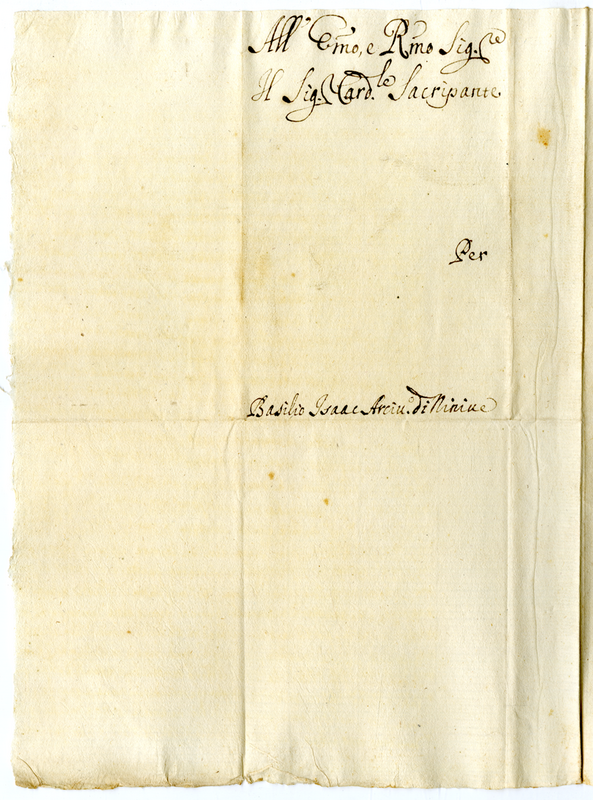 All' Emo, e Rmo Sig.re
Il Sig. Card.le Sacripante
Per
Basilio Isaac Arciu.o di Niniue